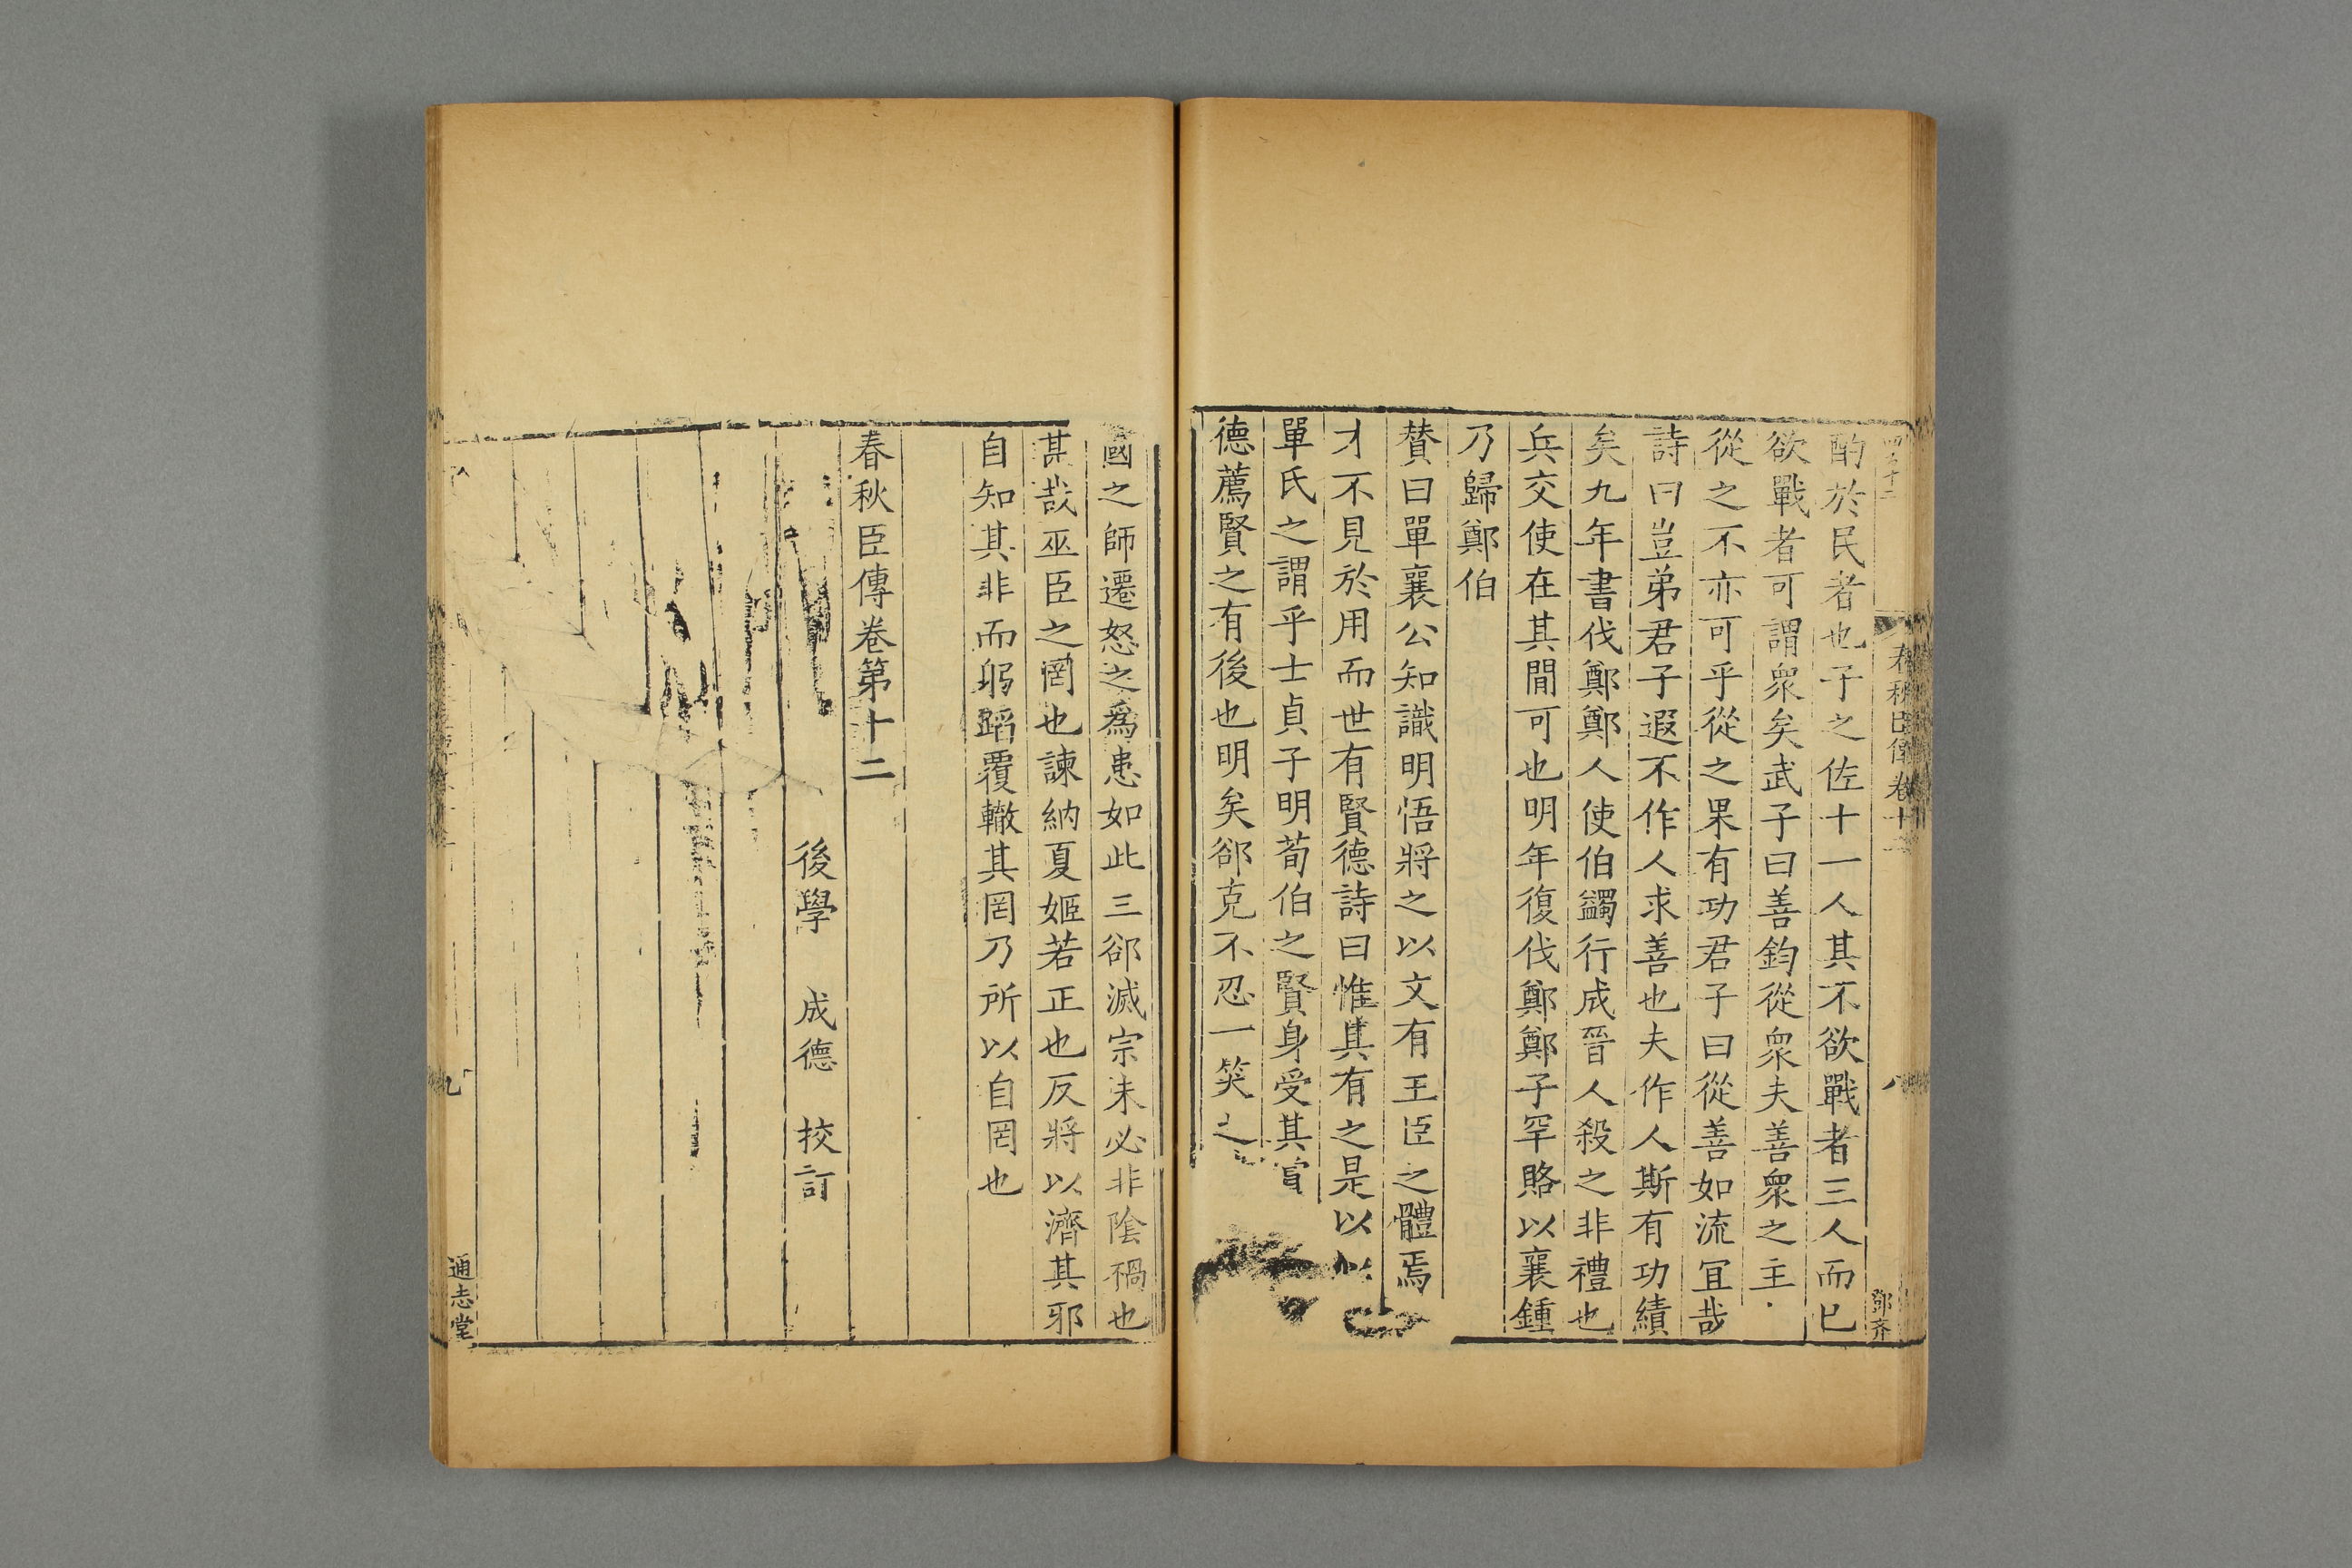 酌於民者也子之佐十一人其不欲戰者三人而已
欲戰者可謂衆矣武子曰善鈞從衆夫善衆之主
從之不亦可乎從之果有功君子曰從善如流宜哉
詩曰豈弟君子遐不作人求善也夫作人斯有功績
矣九年書伐鄭鄭人使伯蠲行成晉人殺之非禮也
兵交使在其間可也明年復伐鄭鄭子罕賂以襄鍾
乃歸鄭伯
賛曰單襄公知識明悟將之以文有王臣之體焉
才不見於用而世有賢德詩曰惟其有之是以
單氏之謂乎士貞子明荀伯之賢身受其
德薦賢之有後也明矣郤克不忍一笑之
春秋臣傳卷十二
八
鄧齐
國之師遷怒之爲患如此三郤滅宗未必非陰禍也
甚哉巫臣之罔也諫納夏姬若正也反將以濟其邪
自知其非而躬蹈覆轍其罔乃所以自罔也
春秋臣傳卷第十二
後學 成德 挍訂
九
通志堂